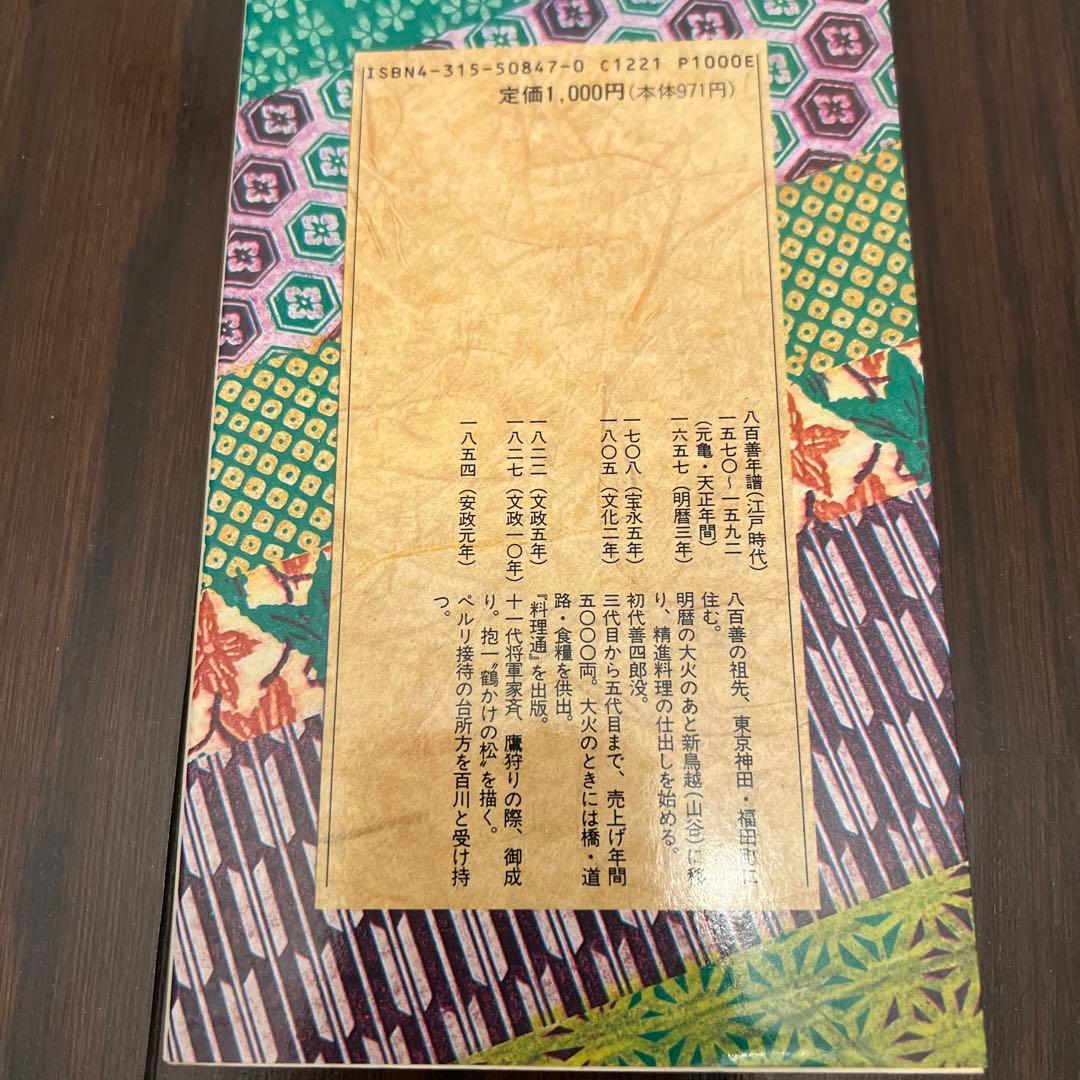 ISBN4-315-50847-0 C1221 P1000E
定価1,000円(本体971円)
八百善年譜(江戸時代)
一五七〇〜一五九二
(元亀・天正年間)
八百善の祖先、東京神田・福田町に
住む。
一六五七(明暦三年)
明暦の大火のあと新鳥越(山谷)に移
り、精進料理の仕出しを始める。
一七〇八(宝永五年)
初代善四郎没。
一八〇五(文化二年)
三代目から五代目まで、売上げ年間
五〇〇〇両。大火のときには橋・道
路・食糧を供出。
一八二二(文政五年)
『料理通』を出版。
一八二七(文政一〇年)
十一代将軍家斉、鷹狩りの際、御成
り。抱一〝鶴かけの松〟を描く。
一八五四(安政元年)
ペルリ接待の台所方を百川と受け持
つ。